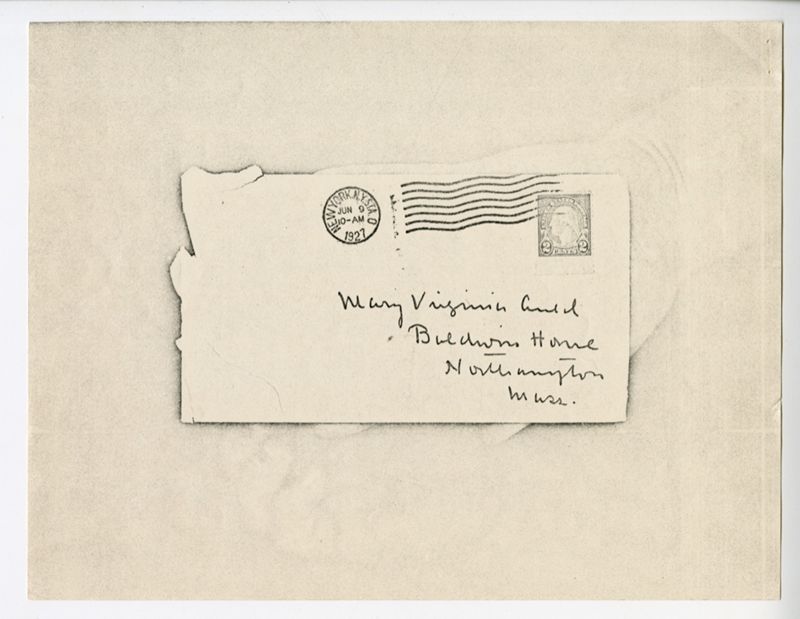 NEW YORK, N.Y. STA. O
JUN 9
10-AM
1927
2 2
Mary Virginia Auld
Baldwin Home
Northampton
Mass.